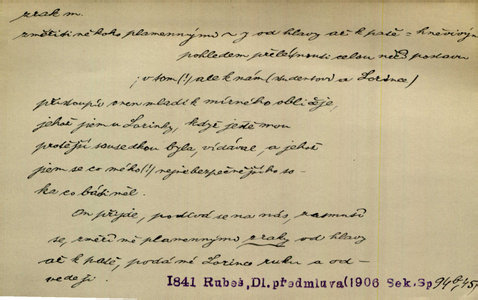 zrak m.
změřiti někoho plamennými ~ y od hlavy až k patě = hněvivým
pohledem přelétnouti celou něčí postavu
; v tom (!) ale k nám (studentovi a Lorince)
přistoupil onen mladík mírného obličeje,
jehož jsem u Lorinky, když ještě mou
protější sousedkou byla, vídával, a jehož
jsem se co mého (!) nejnebezpečnějšího so-
ka co báti měl.
On přijde, podívá se na nás, zasmuší
se, změří mě plamennými zraky od hlavy
až k patě, podá mé Lorince ruku a od-
vede ji.
1841 Rubeš, Dl. předmluva (1906 Sek. Sp 94b,45)